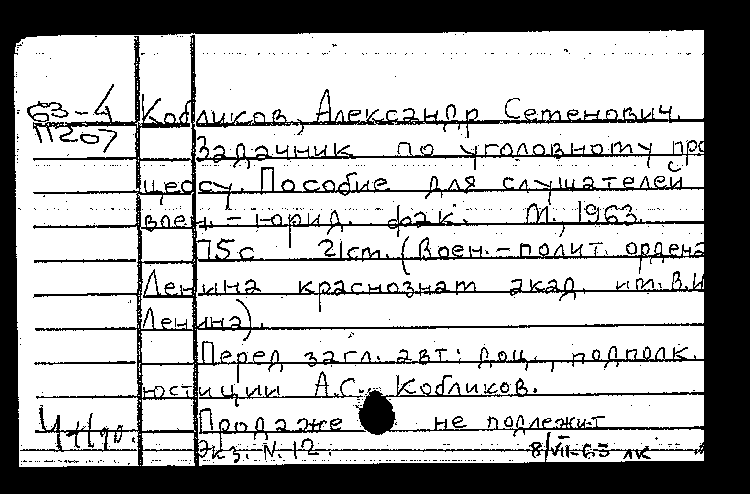 63-4 Кобликов, Александр Семенович.
11207
Задачник по уголовному про
цессу. Пособие для слушателей
воен.-юрид. фак. М., 1963.
115 с 21 см. (Воен.-полит. ордена
Ленина краснознам акад. им. В.И
Ленина).
Перед загл. авт: доц., подполк.
юстиции А.С. Кобликов.
Продаже не подлежит
Экз. N. 12. 8/VII-63 лк